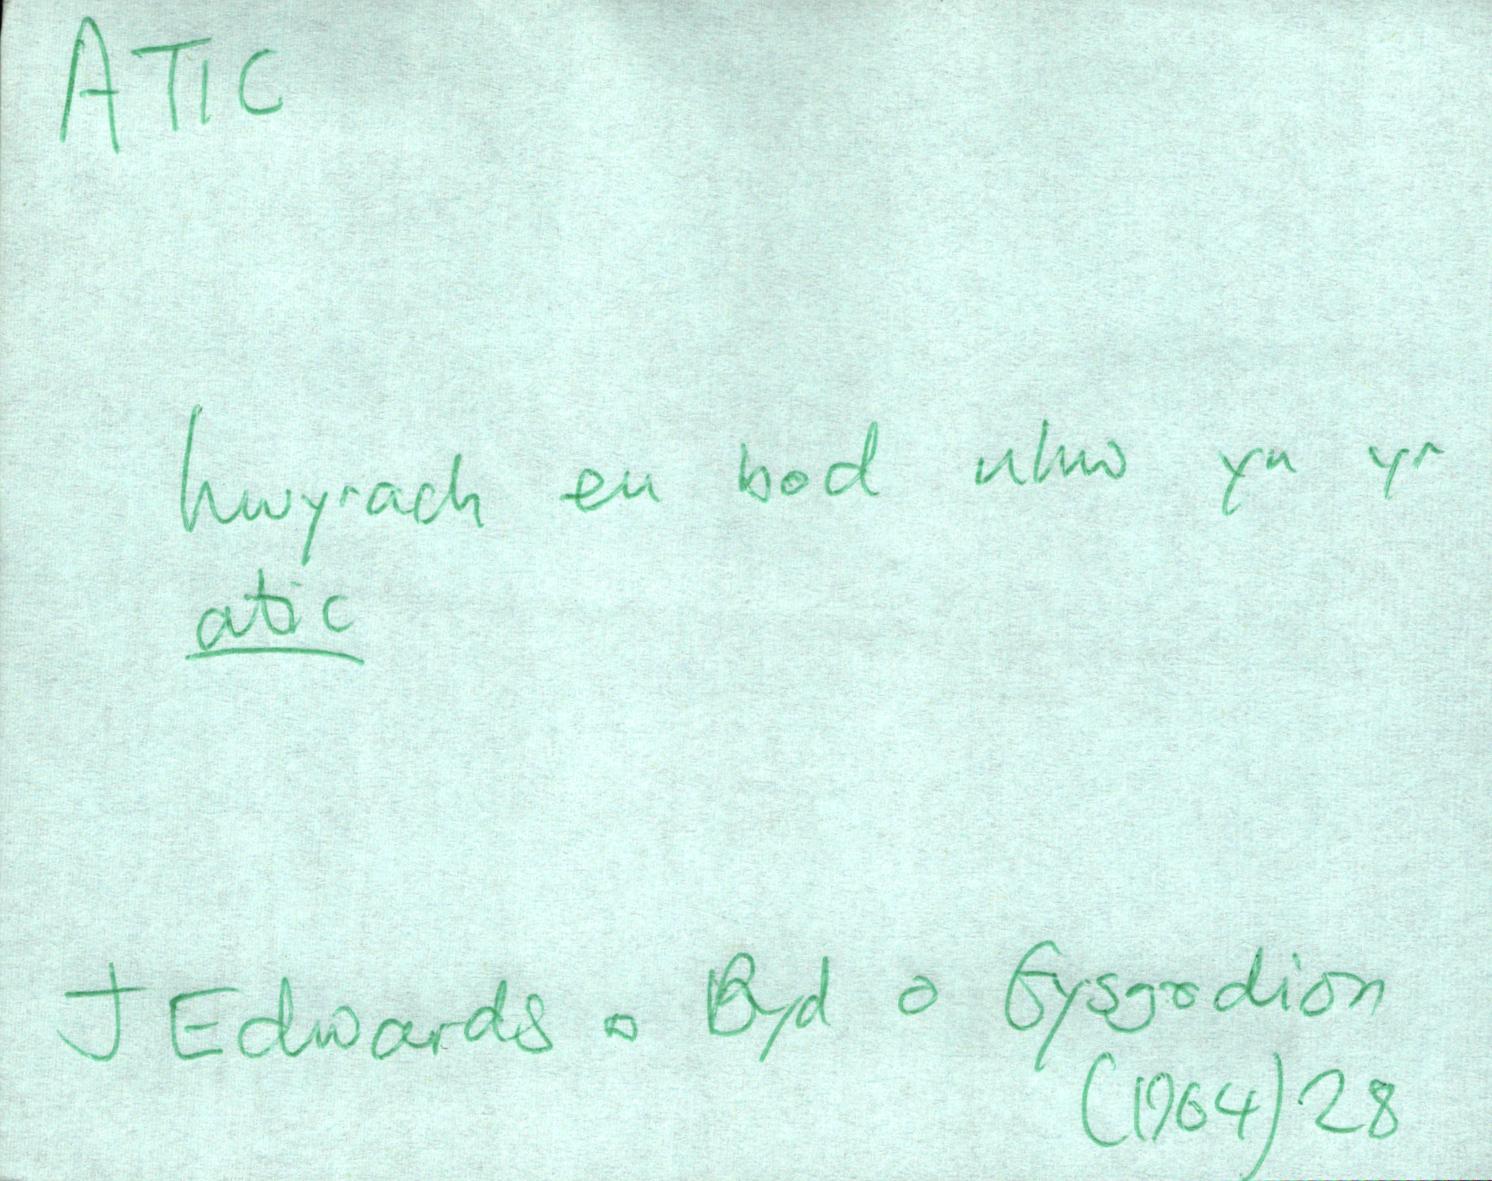 ATIC
hwyrach eu bod nhw yn yr
atic
J Edwards . Byd o Gysgodion
(1964) 28